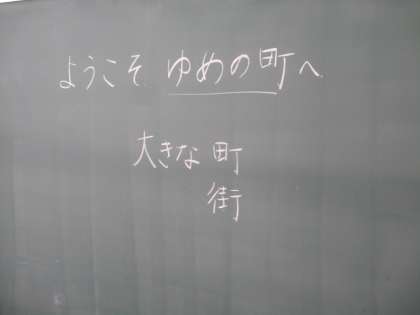 ようこそ ゆめの町へ
大きな 町
街